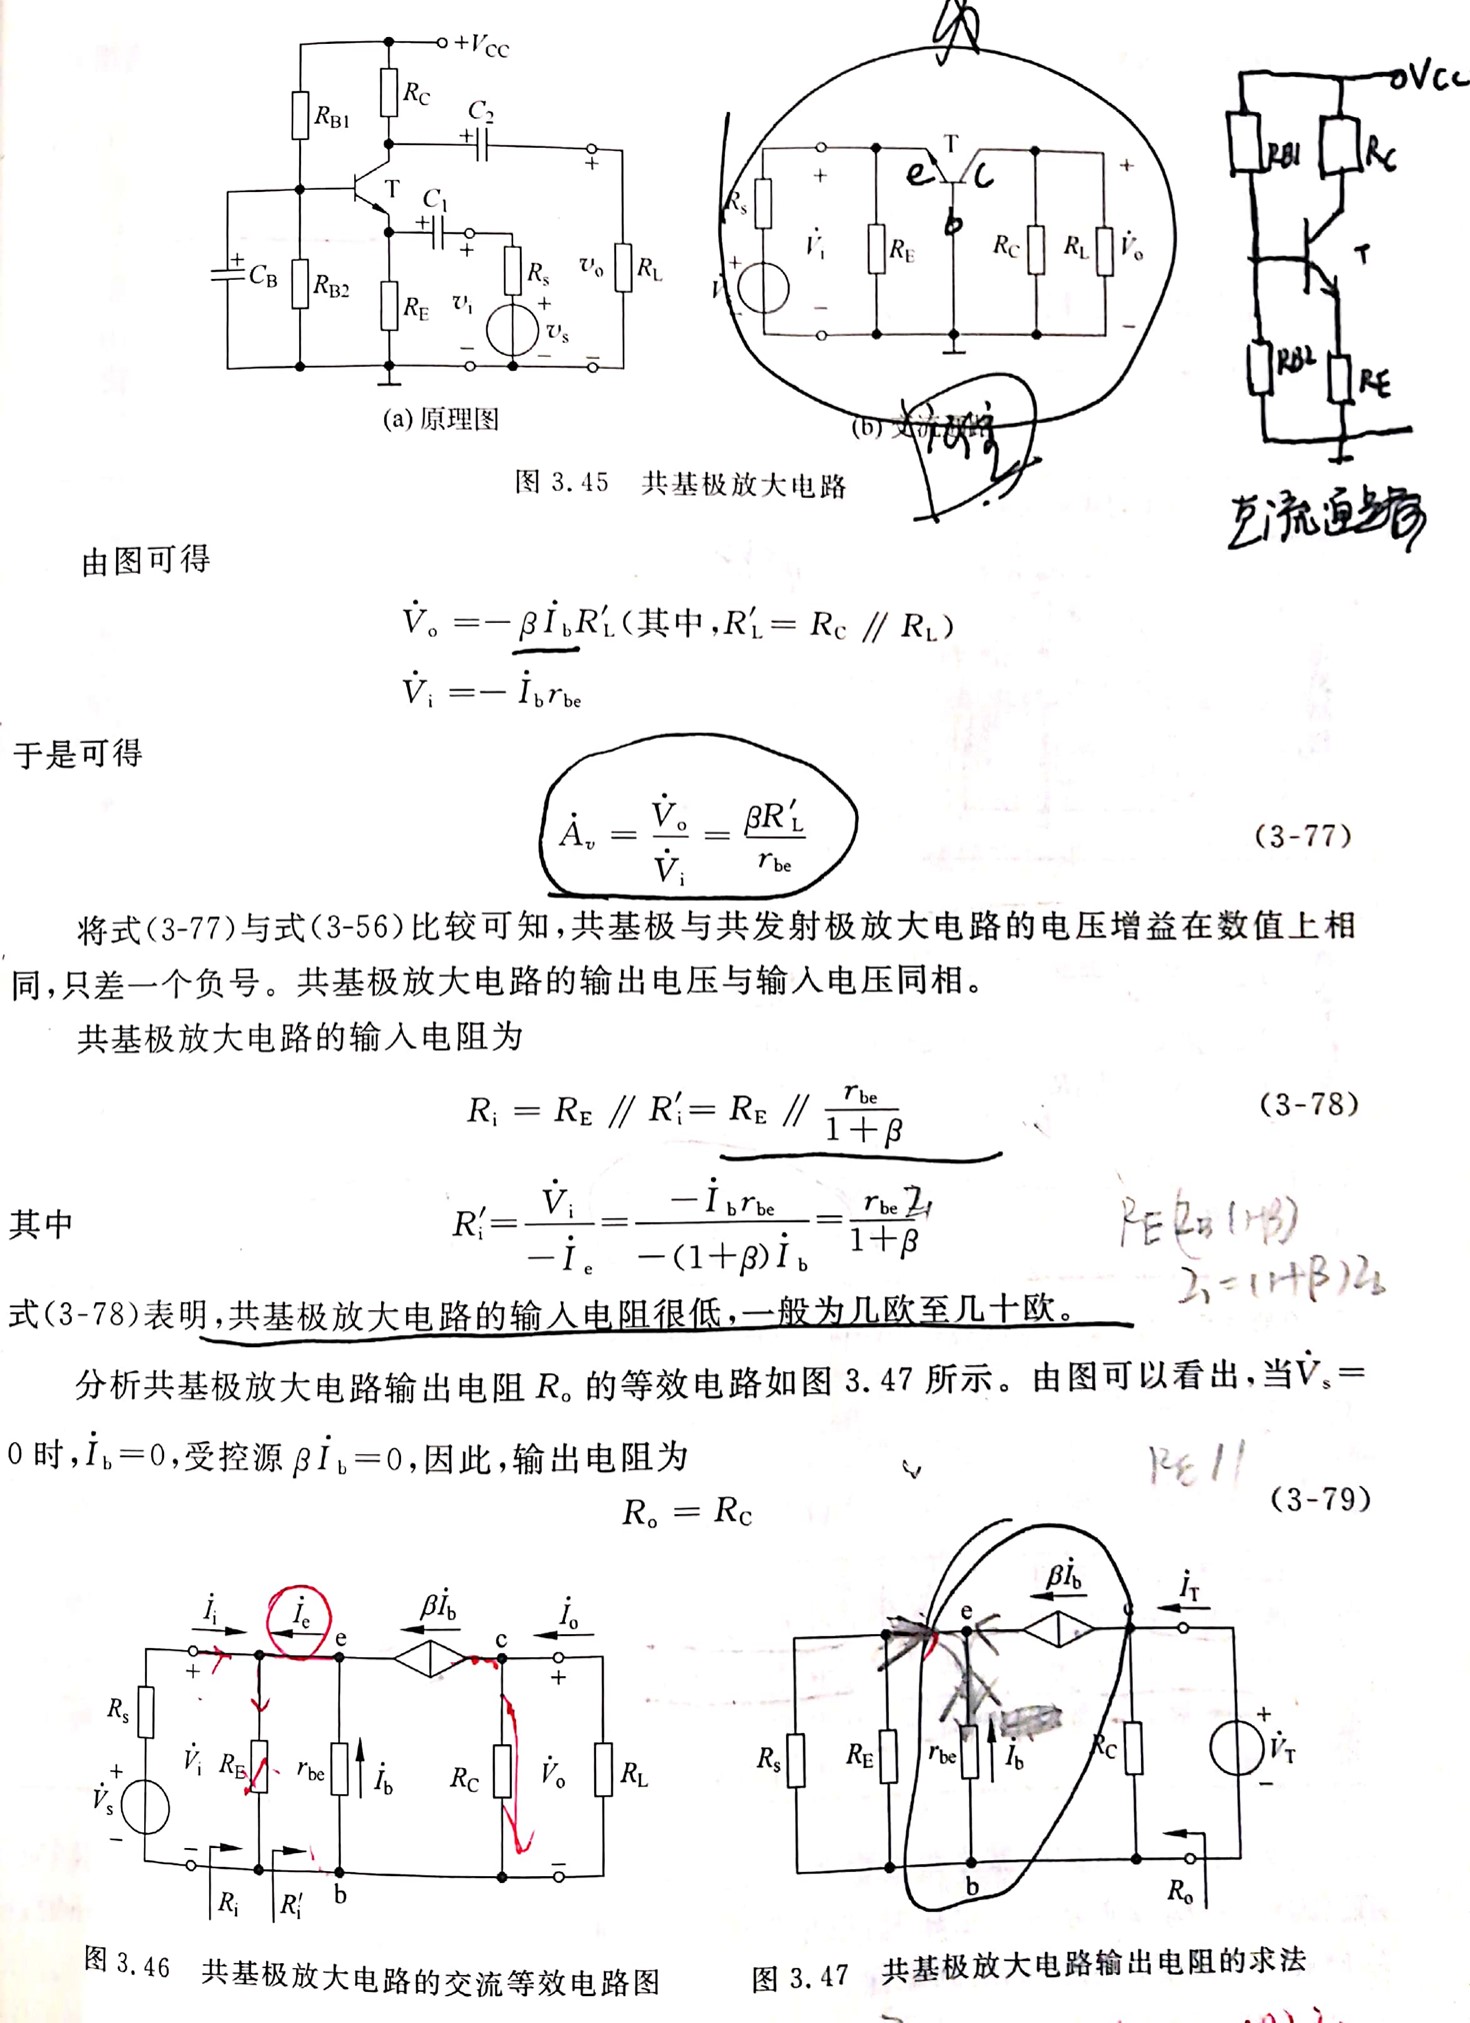 +V_CC
R_C
R_B1
C_2
+
+
T
C_1
+
+
+
C_B
R_B2
R_E
v_i
R_s
+
v_s
v_o
R_L
−
−
−
(a) 原理图
T
e
c
b
R_s
+
V̇_i
R_E
R_C
R_L
V̇_o
+
+
−
−
−
(b) 交流通路
VCC
RB1
RC
T
RB2
RE
图 3.45 共基极放大电路
由图可得
V̇_o =− β İ_b R′_L (其中,R′_L = R_C // R_L)
V̇_i =− İ_b r_be
于是可得
Ȧ_v = V̇_o / V̇_i = βR′_L / r_be (3-77)
将式(3-77)与式(3-56)比较可知,共基极与共发射极放大电路的电压增益在数值上相
同,只差一个负号。共基极放大电路的输出电压与输入电压同相。
共基极放大电路的输入电阻为
R_i = R_E // R′_i = R_E // r_be / (1+β) (3-78)
其中
R′_i = V̇_i / −İ_e = −İ_b r_be / −(1+β) İ_b = r_be / (1+β)
式(3-78)表明,共基极放大电路的输入电阻很低,一般为几欧至几十欧。
分析共基极放大电路输出电阻 R_o 的等效电路如图 3.47 所示。由图可以看出,当V̇_s =
0 时,İ_b=0,受控源 β İ_b=0,因此,输出电阻为
RE //
R_o = R_C (3-79)
İ_i
İ_e
e
βİ_b
c
İ_o
+
+
R_s
V̇_i
R_E
r_be
İ_b
R_C
V̇_o
R_L
+
V̇_s
−
−
−
R_i
R′_i
b
e
βİ_b
c
İ_T
R_s
R_E
r_be
İ_b
R_C
+
V̇_T
−
b
R_o
图 3.46 共基极放大电路的交流等效电路图
图 3.47 共基极放大电路输出电阻的求法